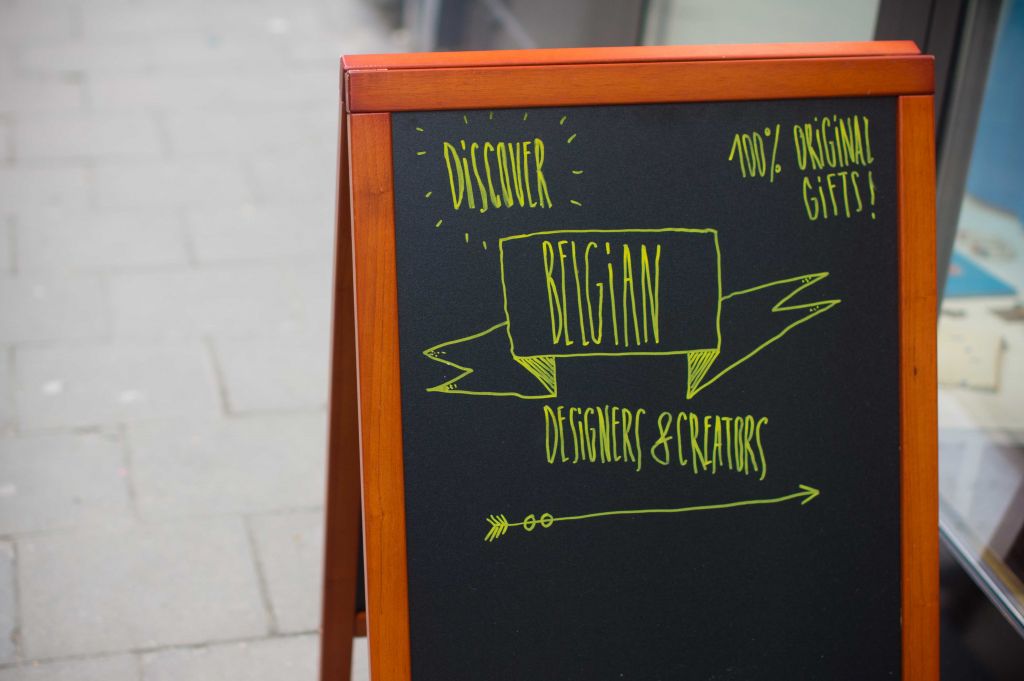 DiSCOVER
100% ORiGiNAL
GiFTS!
BELGiAN
DESiGNERS & CREATORS